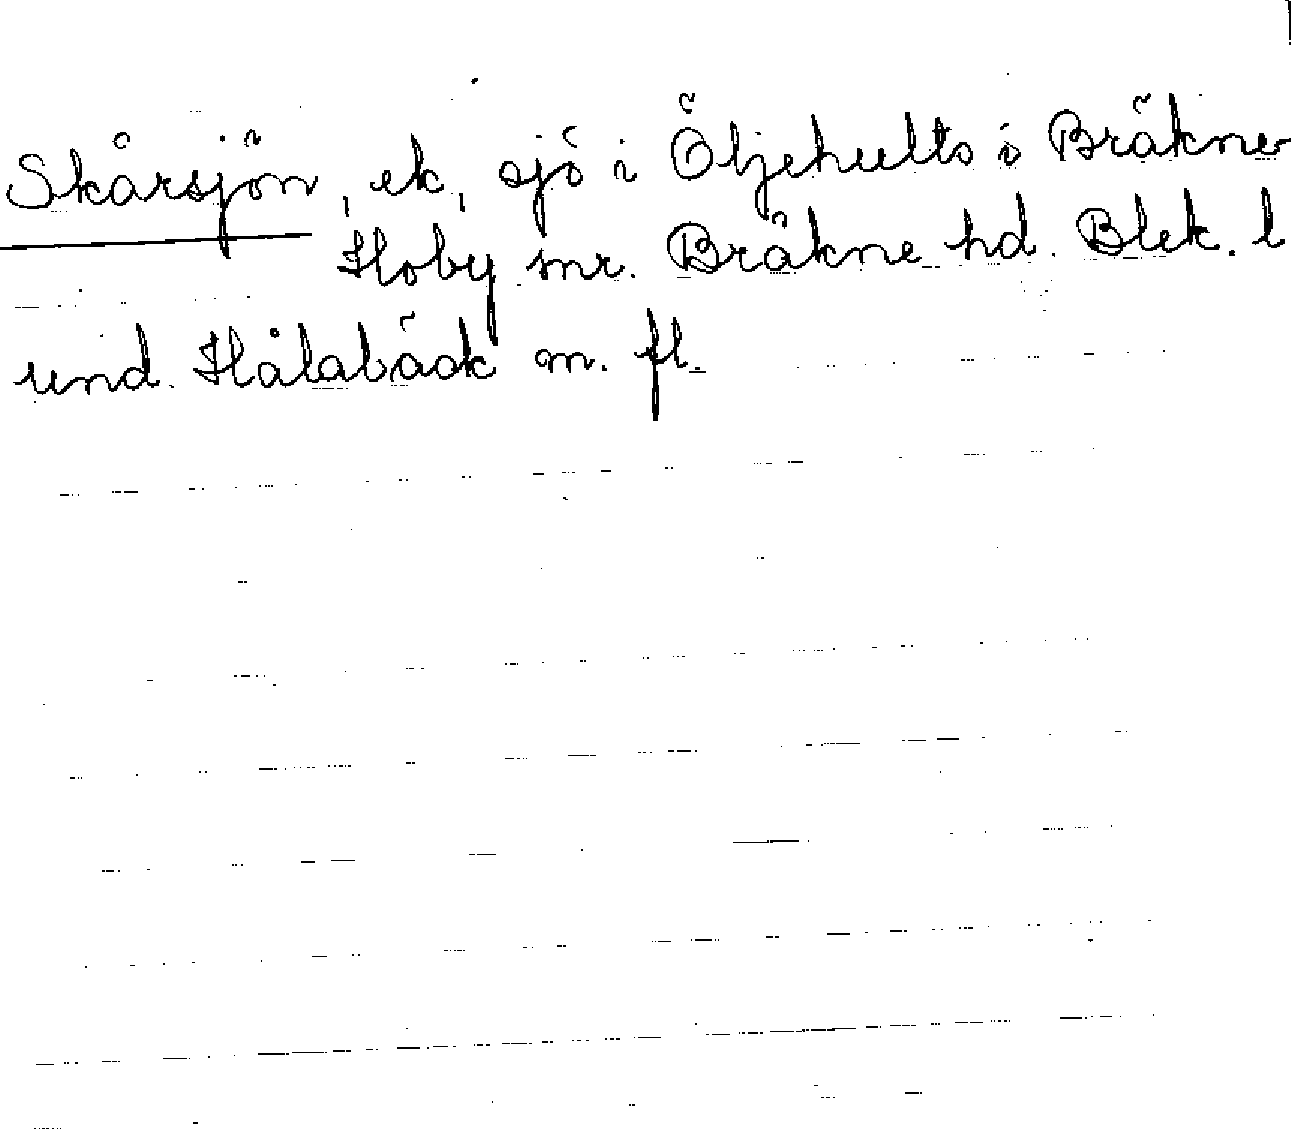 Skårsjön, ek, sjö i Öljehults o Bräkne
Hoby snr. Bräkne hd. Blek. l
und. Hålabäck m. fl.